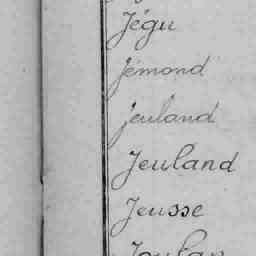 Jégu
Jémond
jeuland
Jeuland
Jeusse